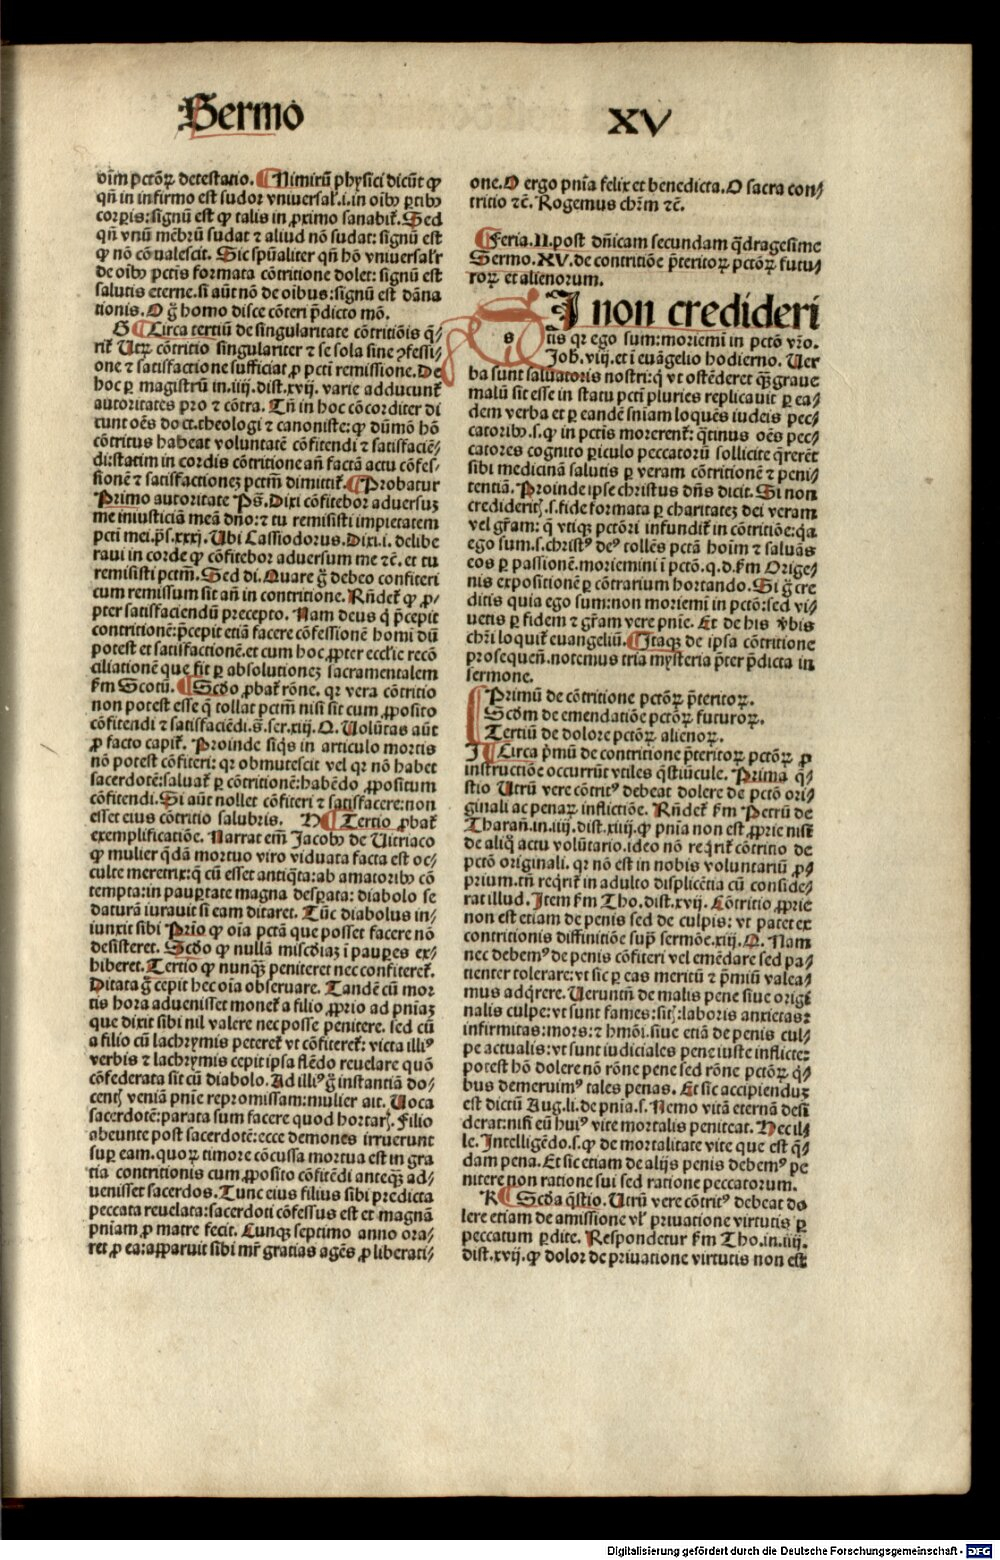 Sermo XV
oīm pctōꝝ detestatio. ¶ Nimirū physici dicūt ꝙ
qñ in infirmo est sudor vniuersal'.i.in oībꝰ ꝑtibꝰ
corꝑis: signū est ꝙ talis in ꝓximo sanabit̃. Sed
qñ vnū mēbrū sudat ⁊ aliud nō sudat: signū est
ꝙ nō cōualescit. Sic spūaliter qñ hō vniuersal'r
de oībꝰ pctis formata cōtritione dolet: signū est
salutis eterne. si aūt nō de oībus: signū est dāna
tionis. O g̃ homo disce cōteri p̄dicto mō.
G ¶ Circa tertiū de singularitate cōtritiōis q̄/
rit̃ Utꝝ cōtritio singulariter ⁊ se sola sine ꝯfessi/
one ⁊ satisfactione sufficiat ꝓ pcti remissione. De
hoc ꝑ magistrū in.iiij.dist.xvij. varie adducunt̃
autoritates pro ⁊ cōtra. Tñ in hoc cōcorditer di
cunt oēs doct.theologi ⁊ canoniste: ꝙ dūmō hō
cōtritus habeat voluntatē cōfitendi ⁊ satisfaciē/
di: statim in cordis cōtritione añ factā actu cōfes/
sionē ⁊ satisfactionez pctm̄ dimittit̃. ¶ Probatur
Primo autoritate Ps̄. Dixi cōfitebor aduersuz
me iniusticiā meā dño: ⁊ tu remisisti impietatem
pcti mei. ps̄.xxxj. Ubi Cassiodorus. Dixi.i. delibe
raui in corde ꝙ cōfitebor aduersum me ⁊c̄. et tu
remisisti pctm̄. Sed di. Quare g̃ debeo confiteri
cum remissum sit añ in contritione. Rñdet̃ ꝙ ꝓ/
pter satisfaciendū precepto. Nam deus q̇ p̄cepit
contritionē: p̄cepit etiā facere cōfessionē homi dū
potest et satisfactionē. et cum hoc ꝓpter eccl'ie recō
ciliationē que fit ꝑ absolutionez sacramentalem
ẜm Scotū. ¶ Scḋo ꝓbat̃ rōne. qr vera cōtritio
non potest esse q̄ tollat pctm̄ nisi sit cum ꝓposito
cōfitendi ⁊ satisfaciēdi. s̄.ser.xiij.Q. Uolūtas aūt
ꝓ facto capit̃. Proinde siq̇s in articulo mortis
nō potest cōfiteri: qr obmutescit vel qr nō habet
sacerdotē: saluat̃ ꝑ cōtritionē: habēdo ꝓpositum
cōfitendi. Si aūt nollet cōfiteri ⁊ satisfacere: non
esset eius cōtritio salubris. H ¶ Tertio ꝓbat̃
exemplificatiōe. Narrat em̄ Jacobꝰ de Uitriaco
ꝙ mulier q̄dā mortuo viro viduata facta est oc/
culte meretrix: q̄ cū esset antiq̄ta: ab amatoribꝰ cō
tempta: in pauꝑtate magna desꝑata: diabolo se
daturā iurauit si eam ditaret. Tūc diabolus in/
iunxit sibi Prīo ꝙ oīa pctā que posset facere nō
desisteret. Scḋo ꝙ nullā miscḋiaz ī pauꝑes ex/
hiberet. Tertio ꝙ nunq̄ꝫ peniteret nec confiteret̃.
Ditata g̃ cepit hec oīa obseruare. Tandē cū mor
tis hora aduenisset monet̃ a filio ꝓprio ad pniaz
que dixit sibi nil valere nec posse penitere. sed cū
a filio cū lachrymis peteret̃ vt cōfiteret̃: victa illiꝰ
verbis ⁊ lachrymis cepit ipsa flēdo reuelare quō
cōfederata sit cū diabolo. Ad illiꝰ g̃ instantiā do/
centꝭ veniā pnīe repromissam: mulier ait. Uoca
sacerdotē: parata sum facere quod hortarꝭ. Filio
abeunte post sacerdotē: ecce demones irruerunt
suꝑ eam. quoꝝ timore cōcussa mortua est in gra
tia contritionis cum ꝓposito cōfitēdi anteq̄ꝫ ad/
uenisset sacerdos. Tunc eius filius sibi predicta
peccata reuelata: sacerdoti cōfessus est et magnā
pniam ꝓ matre fecit. Cunqꝫ septimo anno ora/
ret ꝓ ea: apparuit sibi mr̄ gratias agēs ꝓ liberati/
one. O ergo pnīa felix et benedicta. O sacra con/
tritio ⁊c̄. Rogemus chr̄m ⁊c̄.
¶ Feria.II.post dn̄icam secundam q̄dragesime
Sermo.XV.de contritiōe p̄teritoꝝ pctōꝝ futu/
roꝝ et alienorum.
SI non credideri
s
tis qr ego sum: moriemī in pctō vr̄o.
Joh.viij.et ī euāgelio hodierno. Uer
ba sunt saluatoris nostri: q̇ vt ostēderet q̄ꝫ graue
malū sit esse in statu pcti pluries replicauit ꝑ ea/
dem verba et ꝑ eandē sniam loquēs iudeis pec/
catoribꝰ.s.ꝙ in pctis morerent̃: q̄tinus oēs pec/
catores cognito ꝑiculo peccatorū sollicite q̄rerēt
sibi medicinā salutis ꝑ veram cōtritionē ⁊ peni/
tentiā. Proinde ipse christus dn̄s dicit. Si non
credideritꝭ.s.fide formata ꝑ charitatez dei veram
vel gr̄am: q̄ vtiqꝫ pctōri infundit̃ in cōtritiōe: q̇a
ego sum.s.christꝰ deꝰ tollēs pctā hoīm ⁊ saluās
eos ꝑ passionē. moriemini ī pctō.q.d.ẜm Orige/
nis expositionē ꝑ cōtrarium hortando. Si g̃ cre
ditis quia ego sum: non moriemī in pctō: sed vi/
uetis ꝑ fidem ⁊ gr̄am vere pnīe. Et de his v̄bis
chr̄i loquit̃ euangeliū. ¶ Itaqꝫ de ipsa cōtritione
prosequen̄. notemus tria mysteria p̄ter p̄dicta in
sermone.
Primū de cōtritione pctōꝝ p̄teritoꝝ.
Scḋm de emendatiōe pctōꝝ futuroꝝ.
Tertiū de dolore pctōꝝ alienoꝝ.
I ¶ Circa pͥmū de contritione p̄teritoꝝ pctōꝝ ꝓ
instructiōe occurrūt vtiles q̄stiūcule. Prima q̄/
stio Utrū vere cōtritꝰ debeat dolere de pctō ori/
ginali ac penaꝝ inflictiōe. Rñdet̃ ẜm Petrū de
Tharañ.in.iiij.dist.xiiij.ꝙ pnīa non est ꝓprie nisi
de aliq̇ actu volūtario. ideo nō req̇rit̃ cōtritio de
pctō originali. qr nō est in nobis voluntariū ꝓ/
prium. tñ req̇rit̃ in adulto displicētia cū conside/
rat illud. Item ẜm Tho.dist.xvij. Cōtritio ꝓprie
non est etiam de penis sed de culpis: vt patet ex
contritionis diffinitiōe sup̄ sermōe.xiij.Q. Nam
nec debemꝰ de penis cōfiteri vel emēdare sed pa/
tienter tolerare: vt sic ꝑ eas meritū ⁊ p̄miū valea/
mus adq̇rere. Ueruntñ de malis pene siue origi
nalis culpe: vt sunt fames: sitꝭ: laboris anxietas:
infirmitas: mors: ⁊ hmōi. siue etiā de penis cul/
pe actualis: vt sunt iudiciales pene iuste inflicte:
potest hō dolere nō rōne pene sed rōne pctōꝝ q̇/
bus demeruimꝰ tales penas. Et sic accipienduz
est dictū Aug.li.de pnīa.s. Nemo vitā eternā desi
derat: nisi eū huiꝰ vite mortalis peniteat. Hec il/
le. Intelligēdo.s.ꝙ de mortalitate vite que est q̄/
dam pena. Et sic etiam de alijs penis debemꝰ pe
nitere non ratione sui sed ratione peccatorum.
K ¶ Scḋa q̄stio. Utrū vere cōtritꝰ debeat do
lere etiam de amissione vl' priuatione virtutis ꝑ
peccatum ꝑdite. Respondetur ẜm Tho.in.iiij.
dist.xvij.ꝙ dolor de priuatione virtutis non est
Digitalisierung gefördert durch die Deutsche Forschungsgemeinschaft - DFG